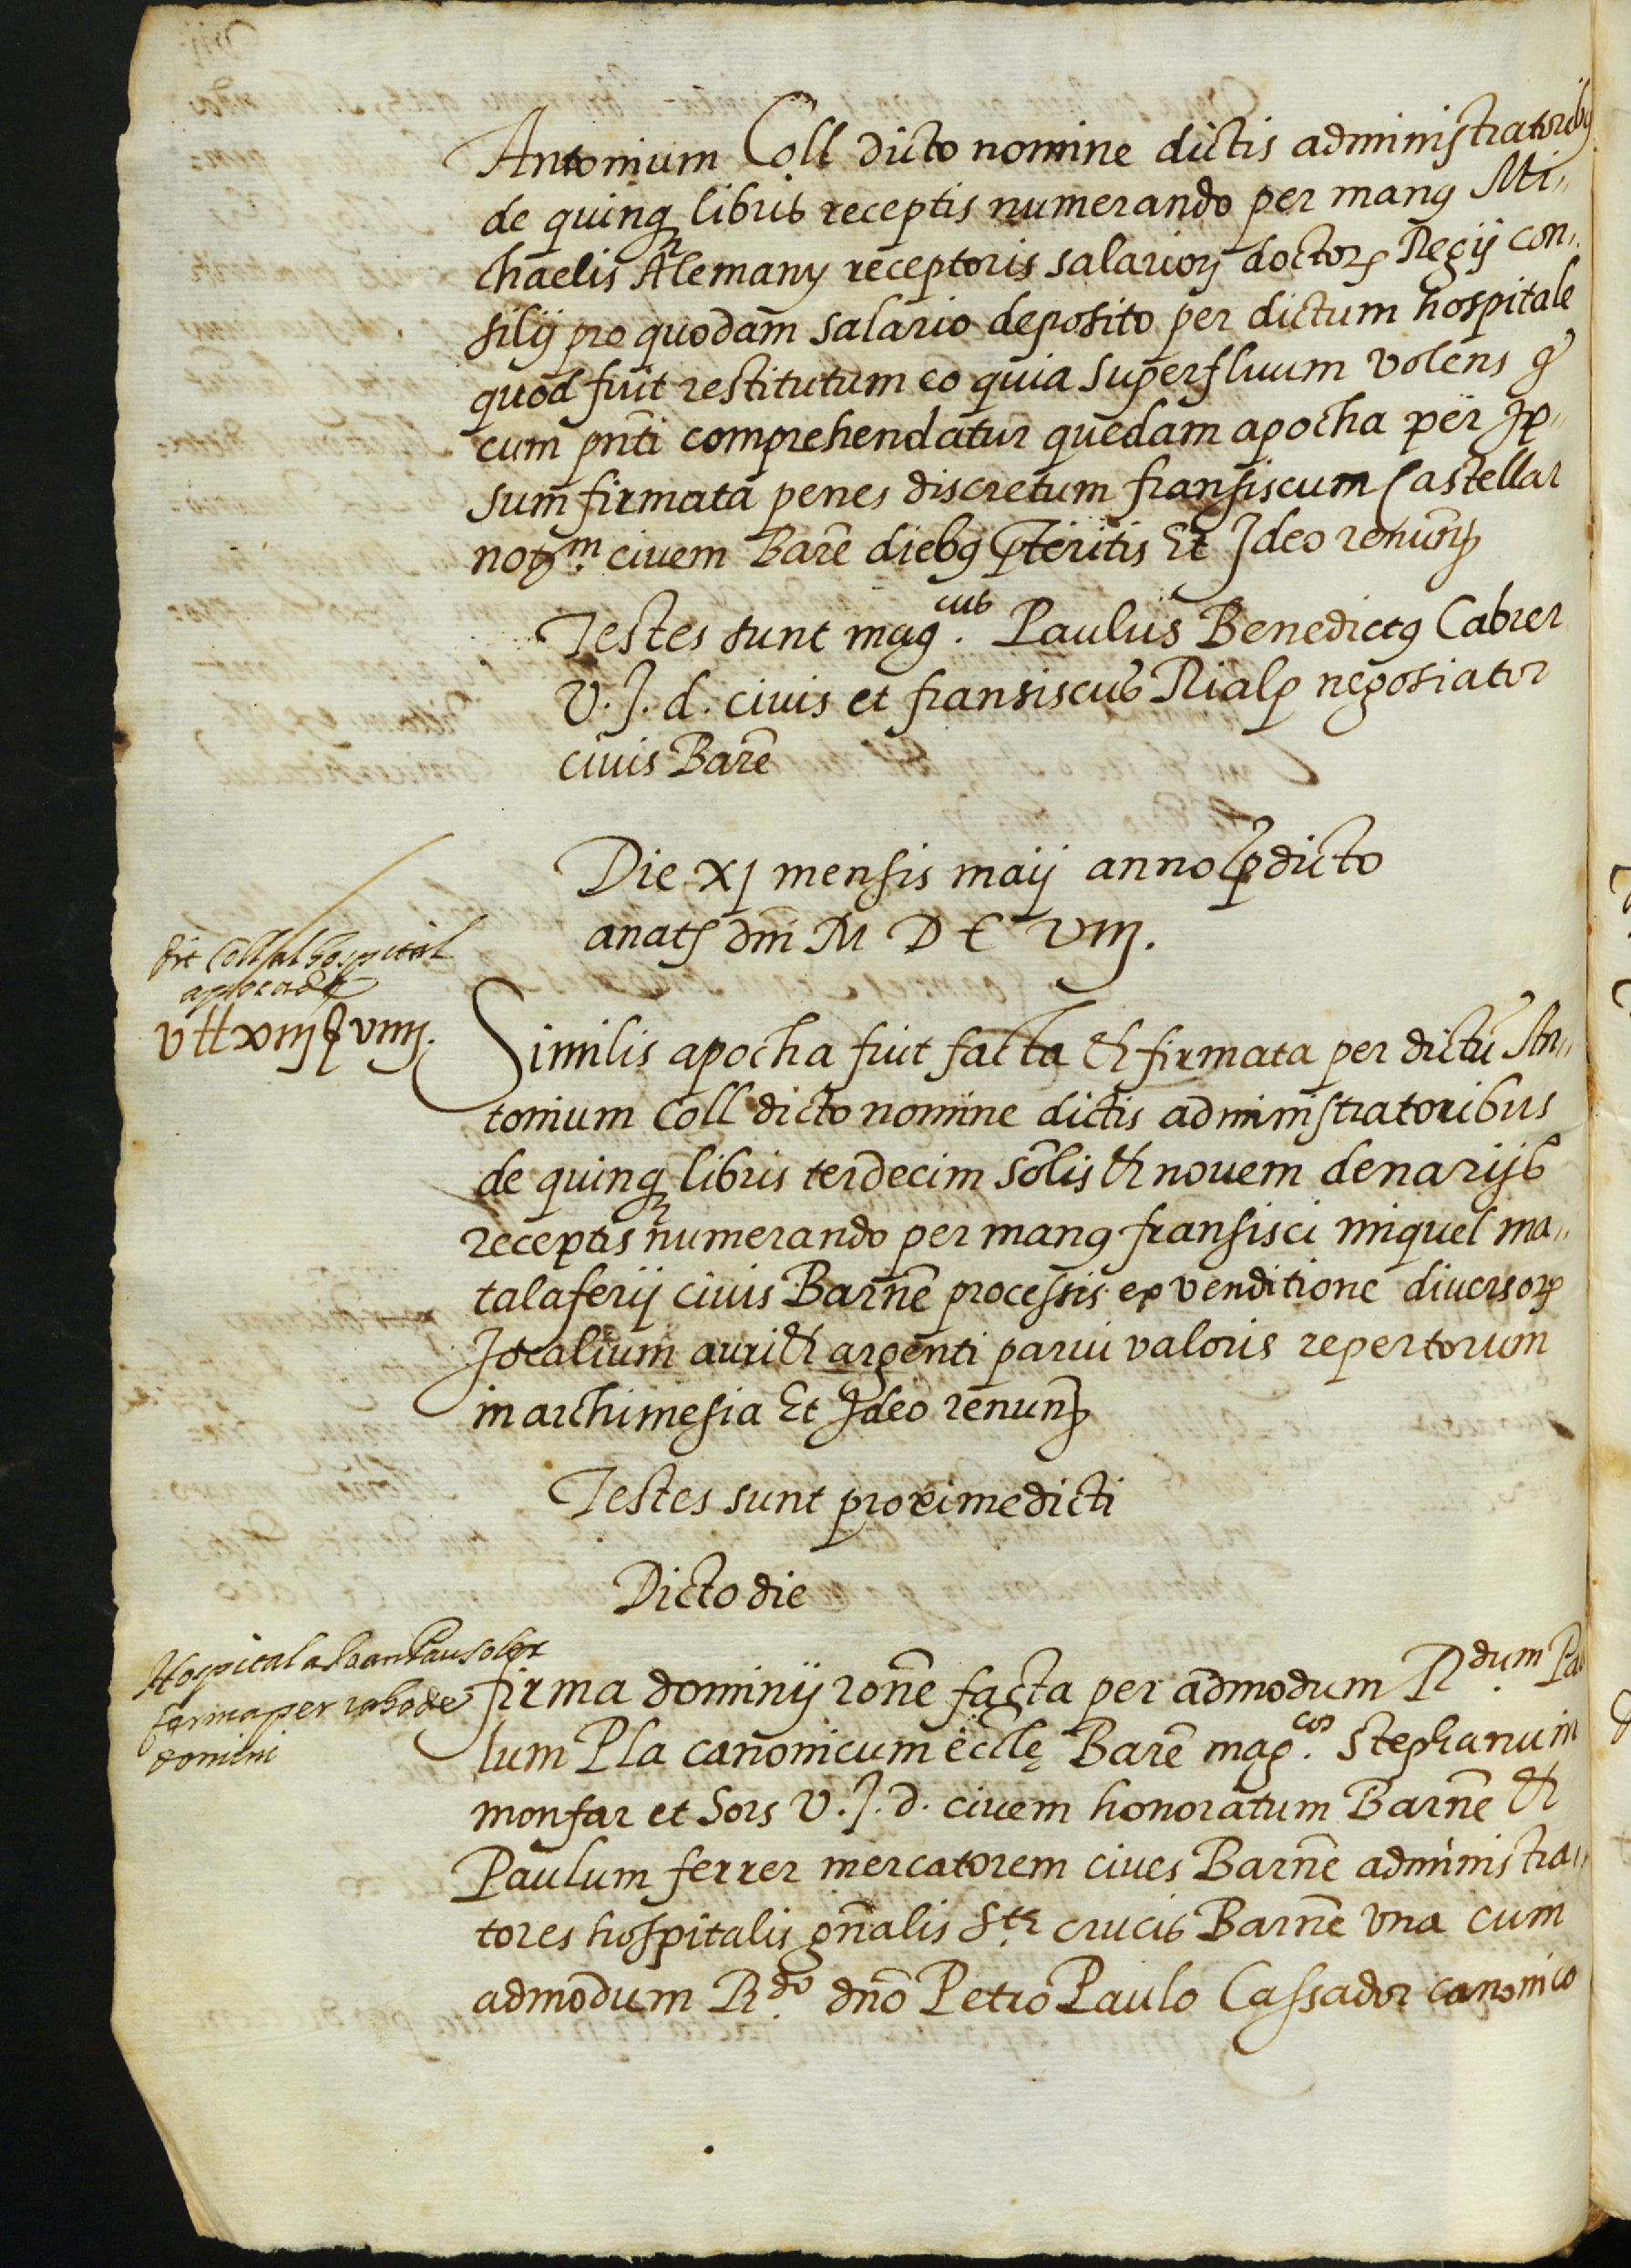 Antonium Coll dicto nomine dictis administratoribꝰ
de quinqꝫ libris receptis numerando per manꝰ Mi„
chaelis Alemany receptoris salarioꝝ doctoꝝ Regij con„
silij pro quodam salario deposito per dictum hospitale
quod fuit restitutum eo quia superfluum volens ꝙ
cum pnti comprehendatur quedam apocha per Ip„
sum firmata penes discretum fransiscum Castellar
notm. civem Barē diebꝰ pteritis Et Ideo renunt
Testes sunt mag.cus Paulus Benedictꝰ Cabrer
V. J. d. civis et fransiscus Rialp negosiator
civis Barē
Die xj mensis maij anno pdicto
anatꝭ dni M D C viiij.
Dit Coll al hospital
apoca de
v ₶ xiij ꝭ viiij.
Similis apocha fuit facta & firmata per dictū An„
tonium Coll dicto nomine dictis administratoribus
de quinqꝫ libris terdecim sōlis & novem denarijs
receptis numerando per manꝰ fransisci miquel ma„
talaferij civis Barnē processis ex venditione diversoꝝ
Jocalium auri & argenti parvi valoris repertorum
in archimesia Et Ideo renunt
Testes sunt proximedicti
Dicto die
Hospital a Joan Pau soler
ferma per raho de
domini
firma dominij rōne facta per admodum Rdum. Pau
lum Pla canonicum ecclę Barē mag.cos Stephanum
monfar et Sors V. J. d. civem honoratum Barnē &
Paulum ferrer mercatorem cives Barnē administra„
tores hospitalis gn̄alis Ste crucis Barnē vna cum
admodum Rdo. dnō Petro Paulo Cassador canonico